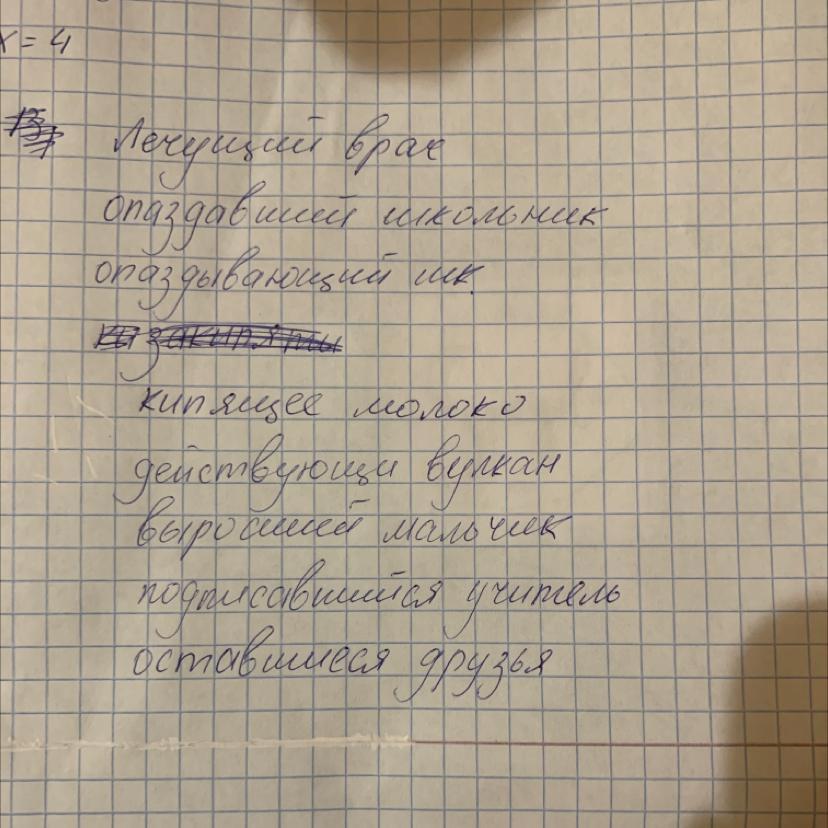 x = 4
Лечущий врач
опаздавший школьник
опаздывающий шк.
кипящее молоко
действующи вулкан
выросший мальчик
подписавшийся учитель
оставшиеся друзья